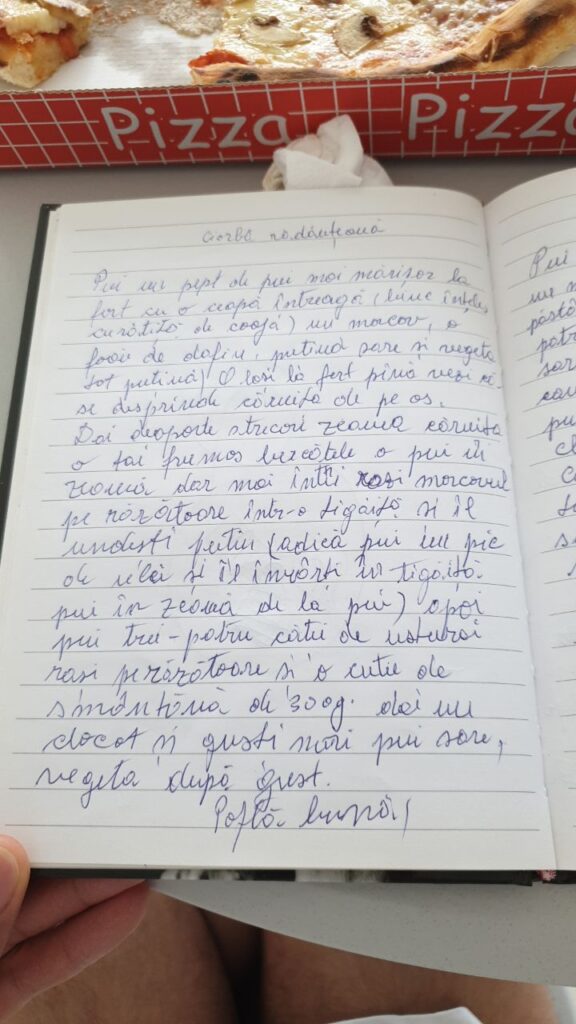 Pizza Pizza
Ciorbă rădăuțeană
Pui un pept de pui mai mărișor la
fert cu o ceapă întreagă (bine înțeles
curățită de coajă) un morcov, o
foaie de dafin, puțină sare si vegeta
tot puțină) O lasi la fert pină vezi că
se desprinde cărnița de pe os.
Dai deoparte strecori zeama cărnița
o tai frumos bucățele o pui în
zeamă dar mai întîi rasi morcovul
pe răzătoare într-o tigăiță si îl
undesti putin (adică pui un pic
de ulei si îl învîrți în tigăiță
pui în zeamă de la pui) apoi
pui trei-patru căței de usturoi
rasi pe răzătoare si o cutie de
smântână de 300g. dai un
clocot si gusti mai pui sare,
vegeta după gust.
Poftă bună!
Pui
un m
patr
sar